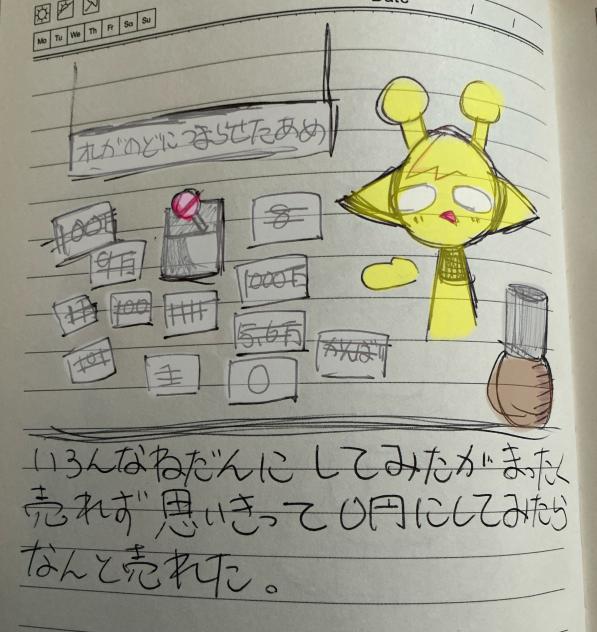 Date
Mo Tu We Th Fr Sa Su
オレがのどにつまらせたあめ
100万
8
9万
1000万
100
5,6万
がんばり
101
0
いろんなねだんにしてみたがまったく
売れず思いきって0円にしてみたら
なんと売れた。